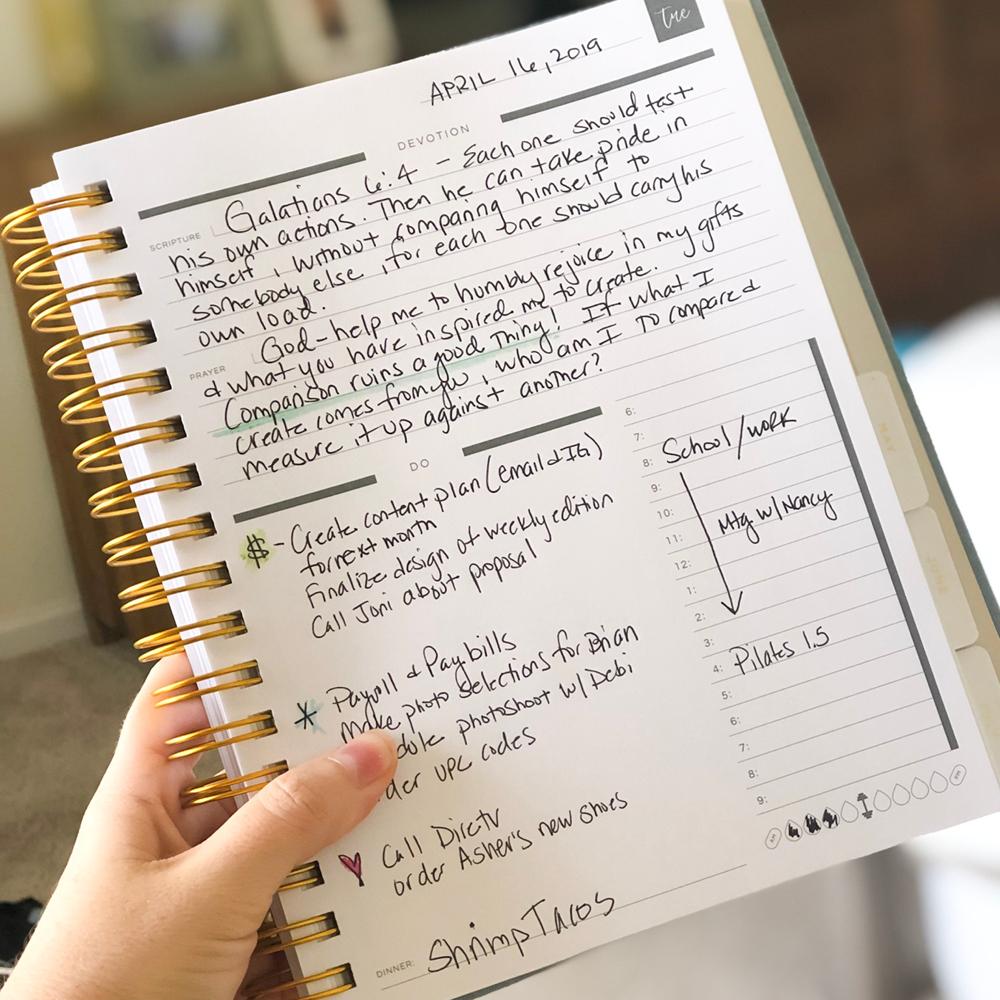 tue
APRIL 16, 2019
DEVOTION
SCRIPTURE
Galatians 6:4 - Each one should test
his own actions. Then he can take pride in
himself, without comparing himself to
somebody else, for each one should carry his
own load.
PRAYER
God- help me to humbly rejoice in my gifts
& what you have inspired me to create.
Comparison ruins a good thing! If what I
create comes from you, who am I to compared
measure it up against another?
DO
$ - Create content plan (email & IG)
for next month
Finalize design of weekly edition
Call Joni about proposal
* Payroll & Pay bills
Make photo selections for Brian
dule photoshoot w/ Debi
der UPC codes
Call Dirctv
order Asher's new shoes
6:
7:
8: School/work
9:
10:
Mtg w/ Nancy
11:
12:
1:
2:
3:
4: Pilates 1.5
5:
6:
7:
8:
9:
AM
PM
DINNER: Shrimp Tacos
MAY
JUNE